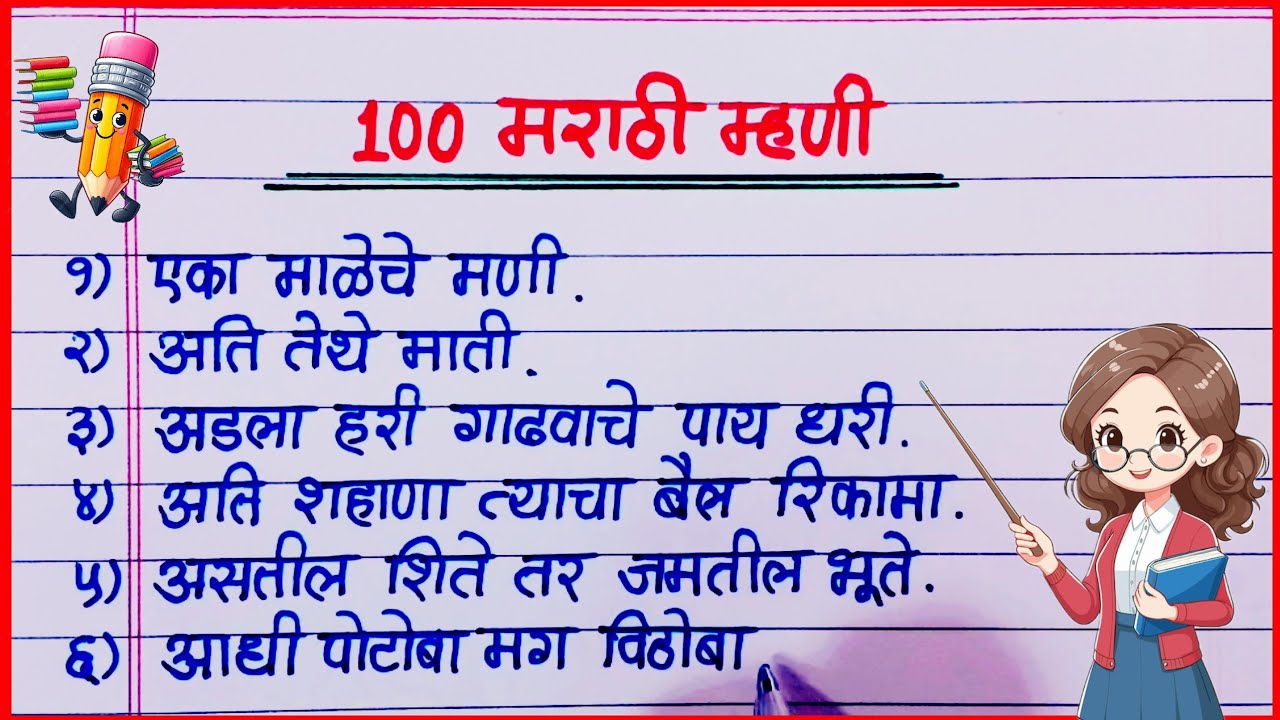 100 मराठी म्हणी
१) एका माळेचे मणी.
२) अति तेथे माती.
३) अडला हरी गाढवाचे पाय धरी.
४) अति शहाणा त्याचा बैल रिकामा.
५) असतील शिते तर जमतील भूते.
६) आधी पोटोबा मग विठोबा